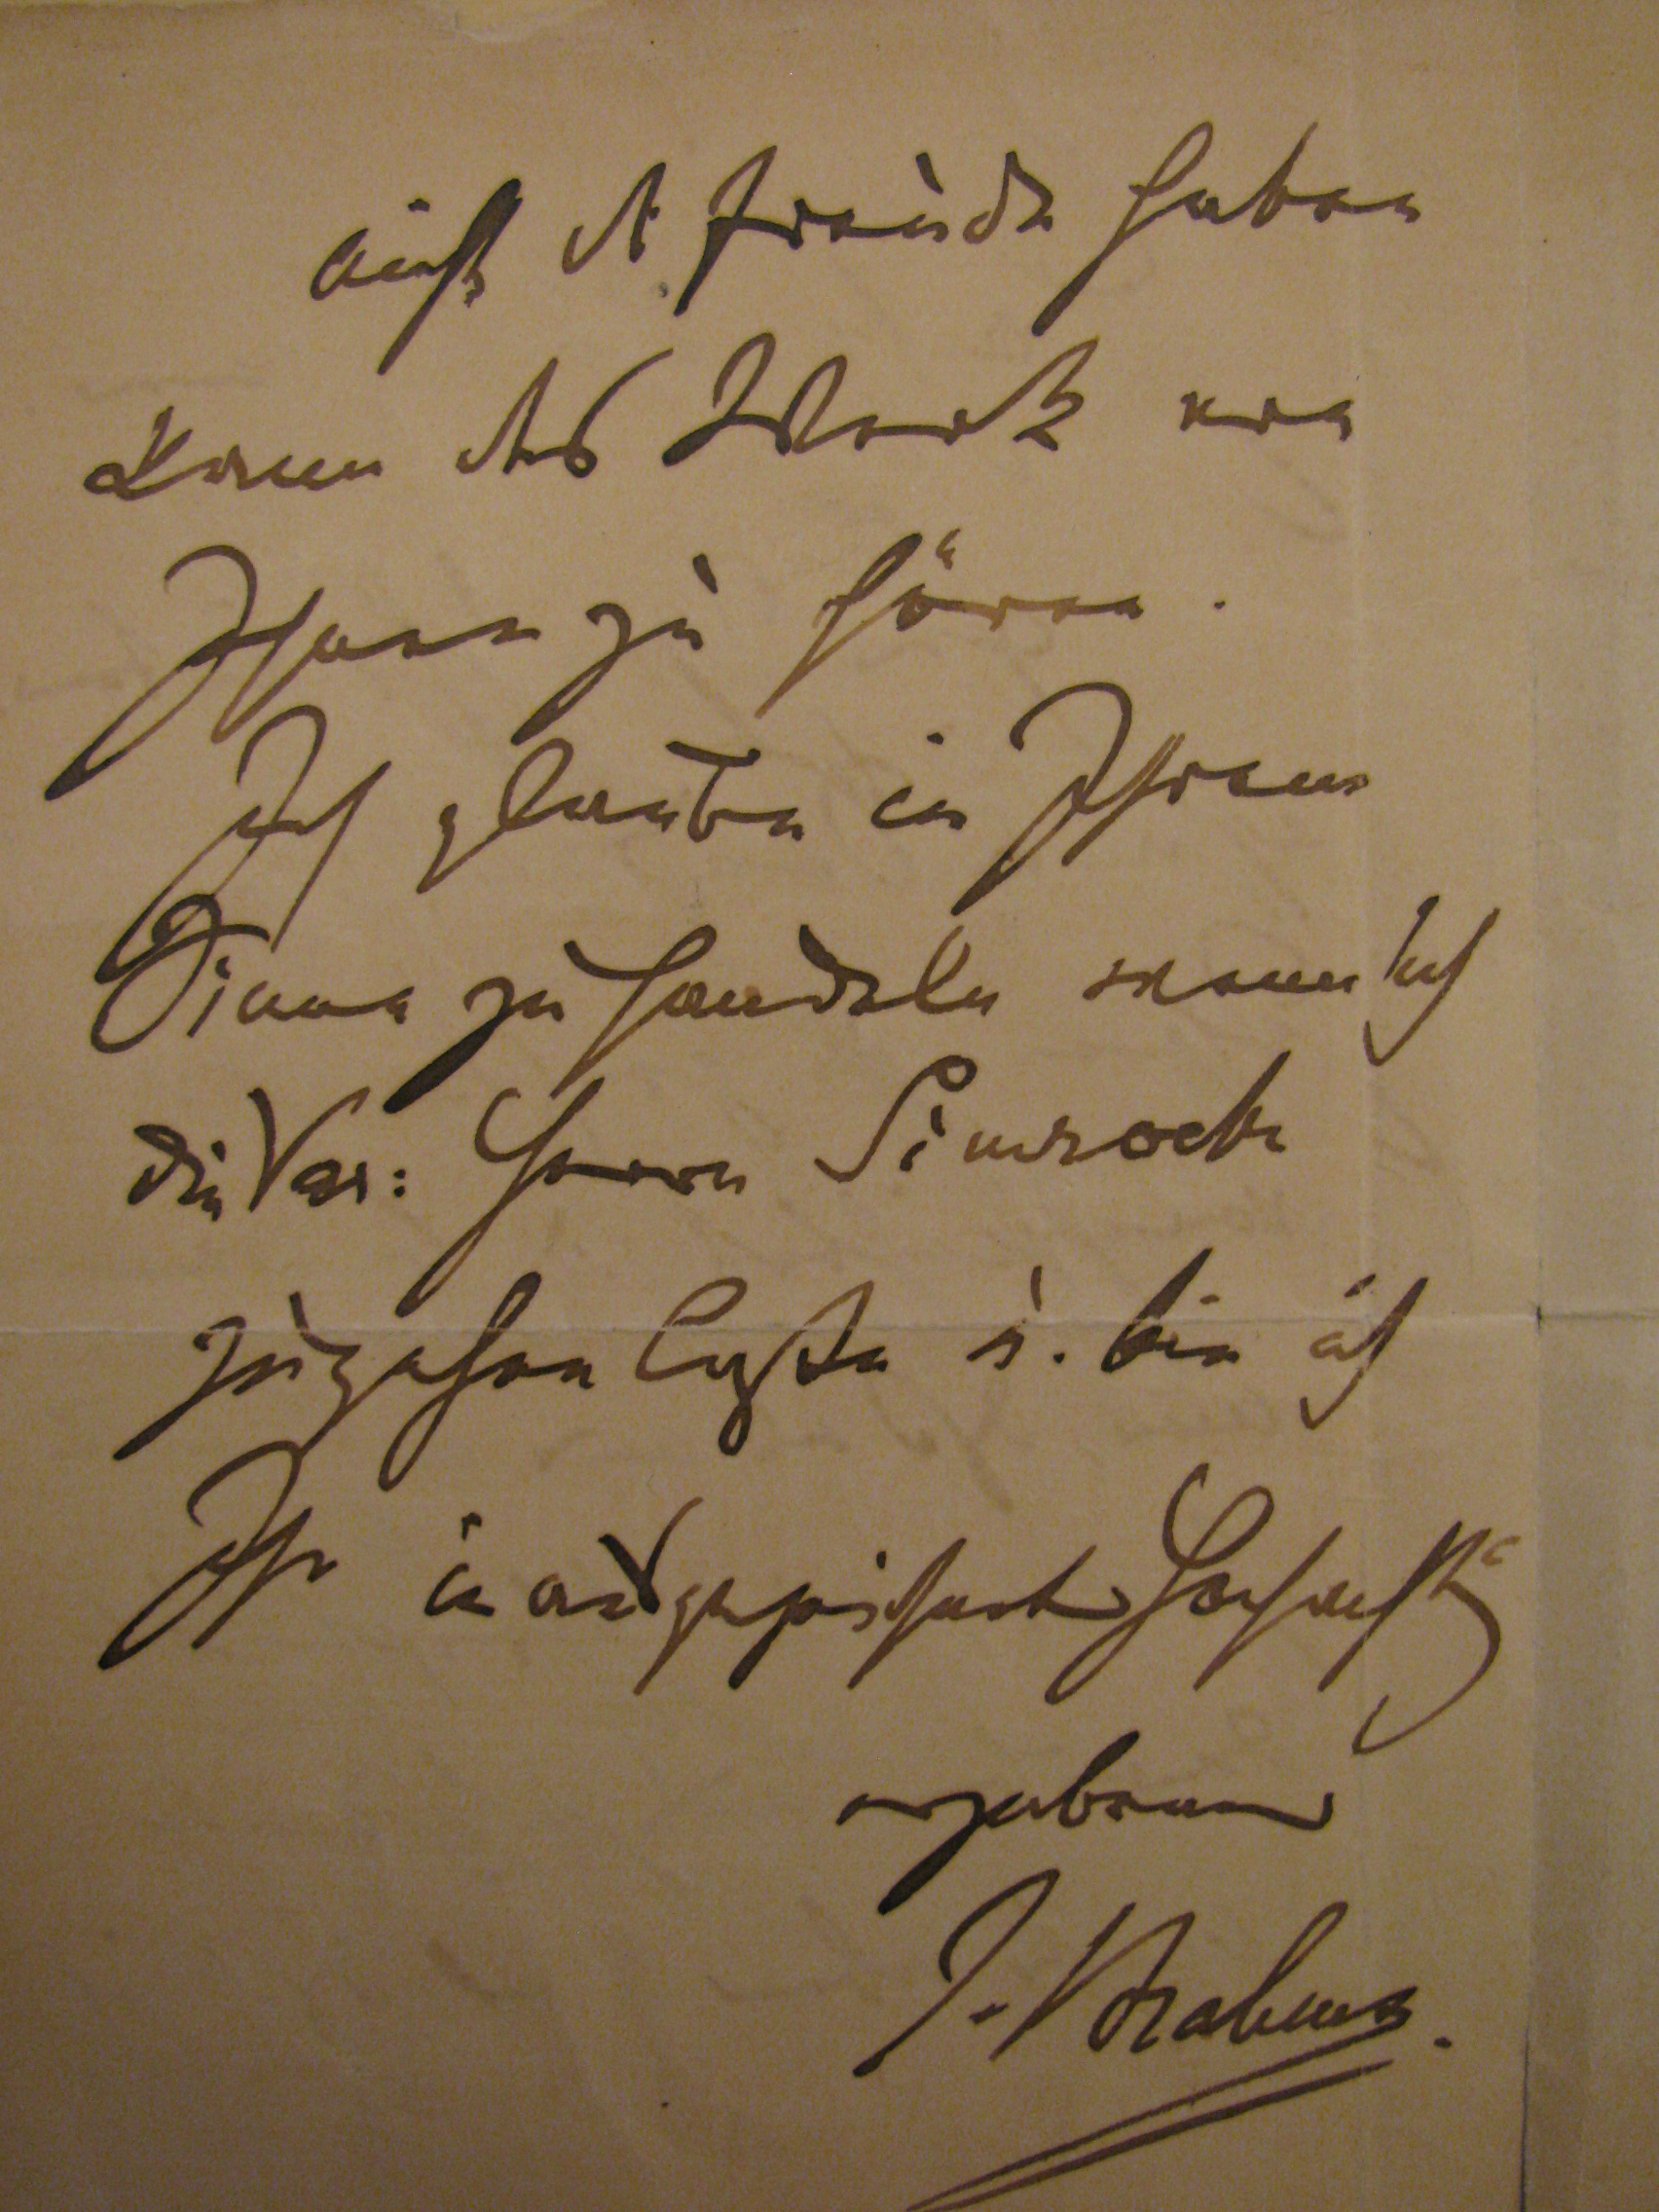 nicht die Freude haben
kann das Werk von
Ihnen zu hören.
Ich glaube in Ihrem
Sinne zu handeln wenn ich
die Var: Herrn Simrock
zugehen ließe u. bin ich
Ihr in ausgezeichneter Hochachtg
ergebener
J. Brahms.